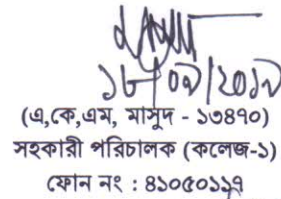 (এ,কে,এম, মাসুদ - ১৩৪৭০)
সহকারী পরিচালক (কলেজ-১)
ফোন নং : ৪১০৫০১১৭